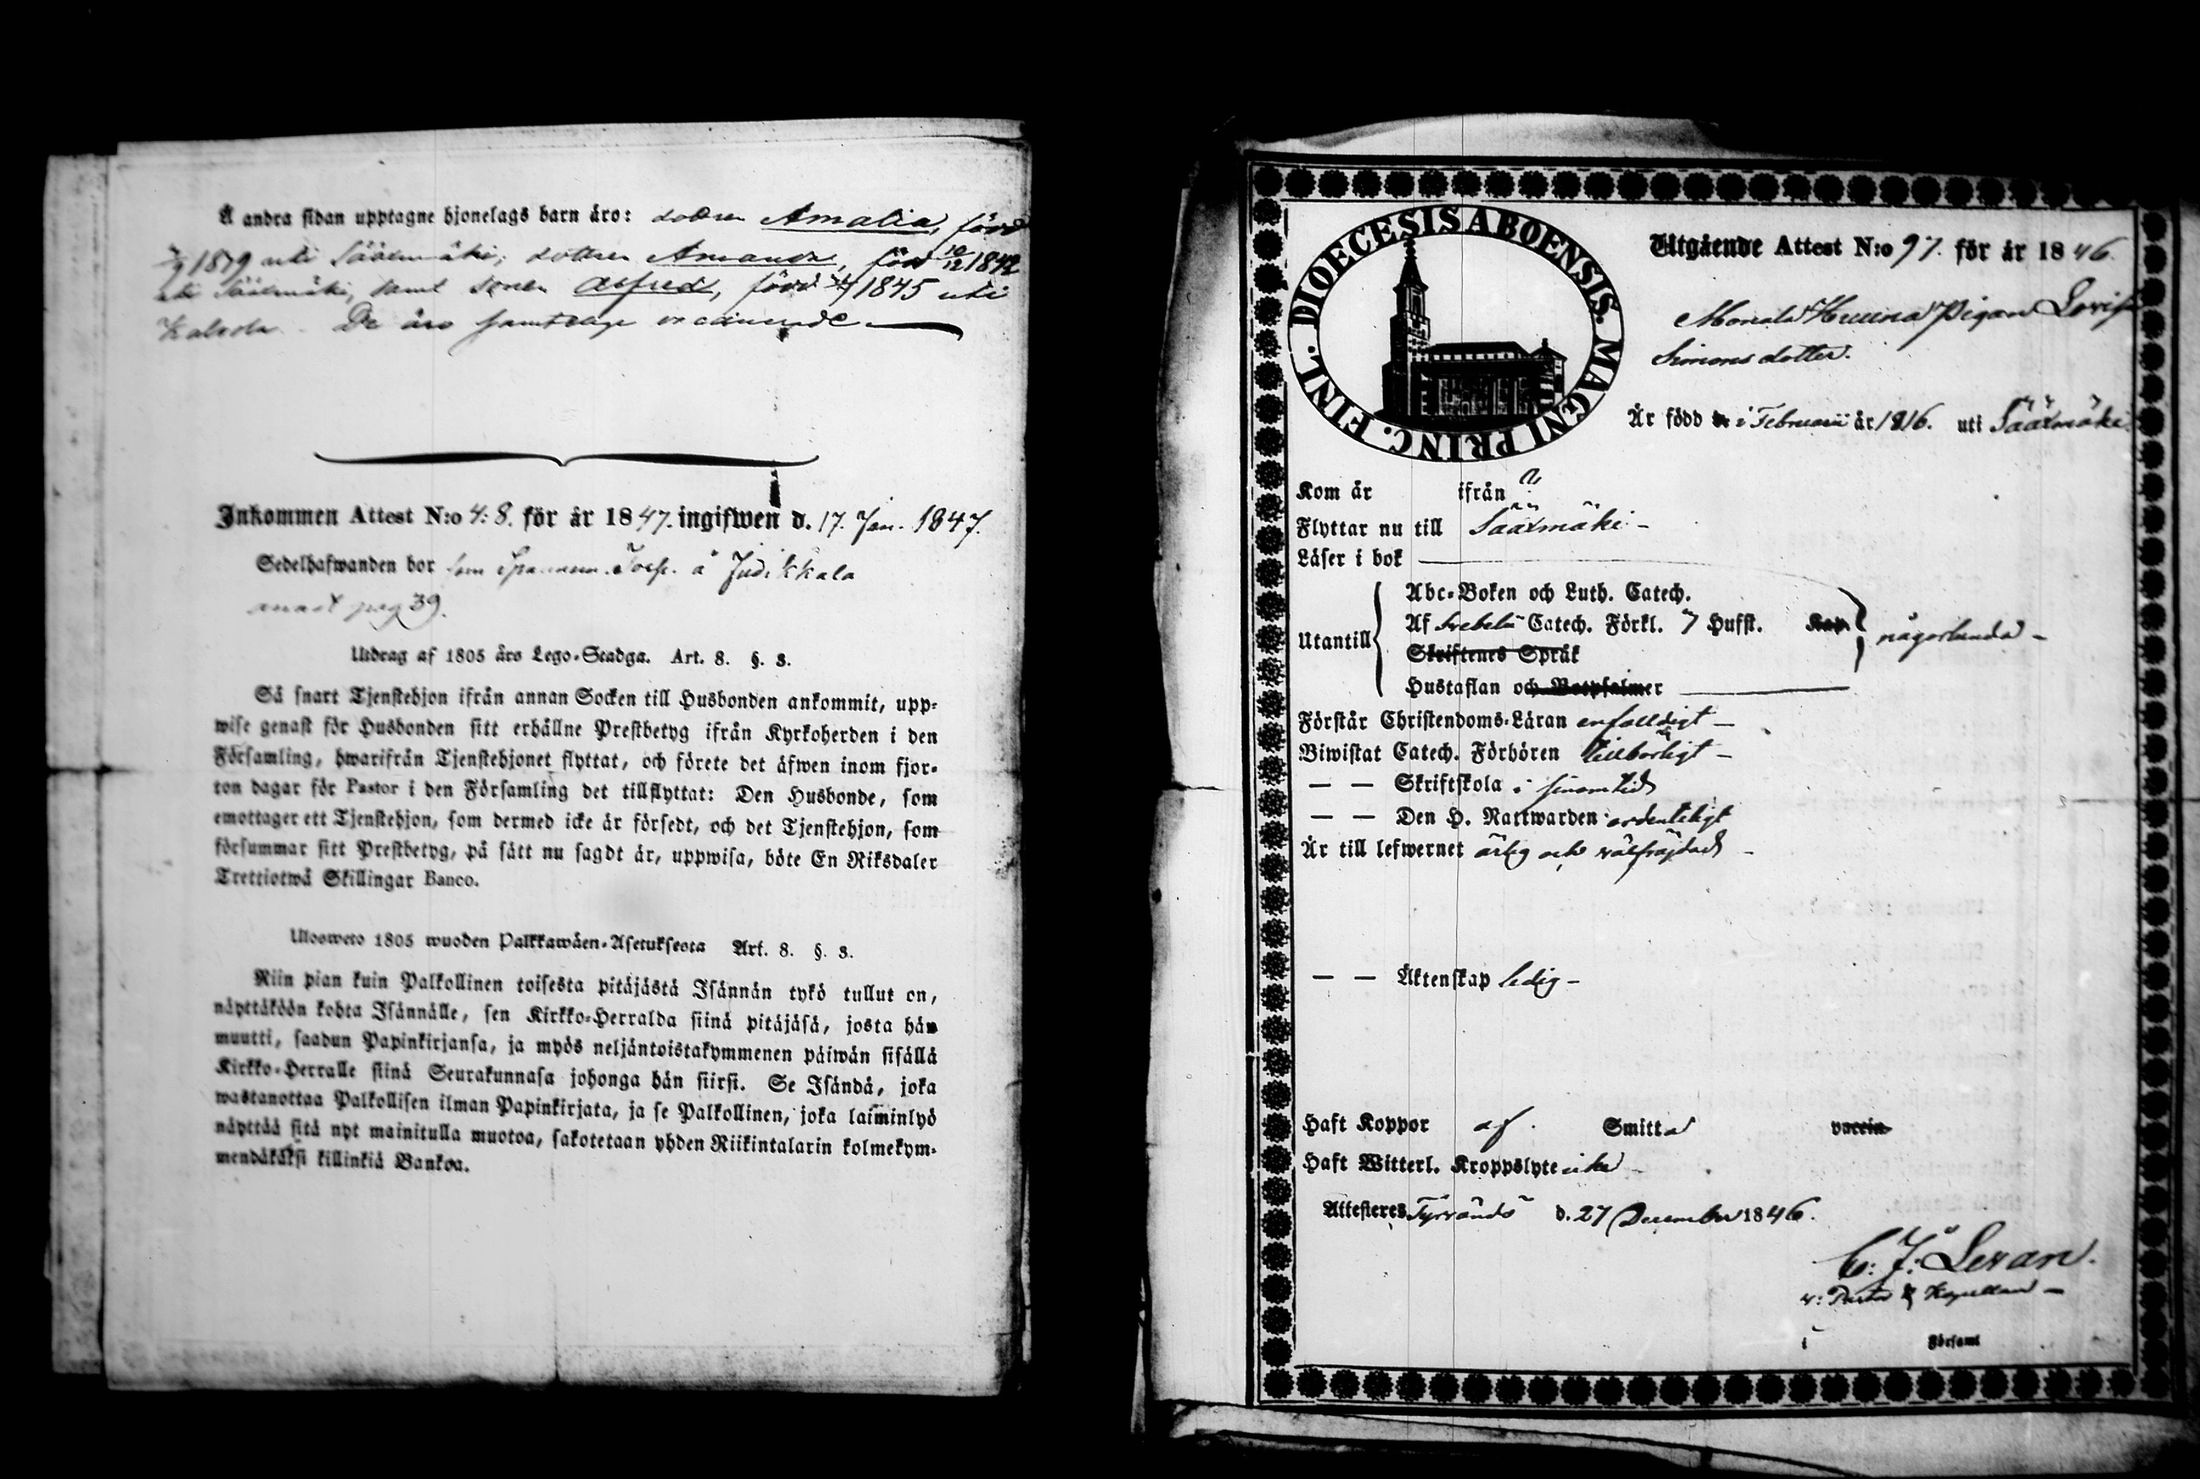 Å andra sidan upptagne hjonelags barn äro: dottren Amalia, född
1839 uti Sääxmäki, dottren Amanda, född 10/12 1842
uti Sääxmäki, samt sonen Alfred, född 1845 uti
Kalvola. De äro samtelige vaccinerade
Inkommen Attest N:o 4:8. för år 1847. ingifwen d. 17. Jan. 1847.
Sedelhafwanden bor som Torp. å Judikkala
pag 39.
Utdrag af 1805 års Lego-Stadga. Art. 8. §. 3.
Så snart Tjenstehjon ifrån annan Socken till Husbonden ankommit, upp-
wise genast för Husbonden sitt erhållne Prestbetyg ifrån Kyrkoherden i den
Församling, hwarifrån Tjenstehjonet flyttat, och förete det äfwen inom fjor-
ton dagar för Pastor i den Församling det tillflyttat: Den Husbonde, som
emottager ett Tjenstehjon, som dermed icke är försedt, och det Tjenstehjon, som
försummar sitt Prestbetyg, på sätt nu sagdt är, uppwisa, böte En Riksdaler
Trettiotwå Skillingar Banco.
Ulosweto 1805 wuoden Palkkawäen-Asetuksesta Art. 8. §. 3.
Niin pian kuin Palkollinen toisesta pitäjästä Isännän tykö tullut on,
näyttäköön kohta Isännälle, sen Kirkko-Herralda siinä pitäjäsä, josta hän
muutti, saadun Papinkirjansa, ja myös neljäntoistakymmenen päiwän sisällä
Kirkko-Herralle siinä Seurakunnasa johonga hän siirsi. Se Isändä, joka
wastanottaa Palkollisen ilman Papinkirjata, ja se Palkollinen, joka laiminlyö
näyttää sitä nyt mainitulla muotoa, sakotetaan yhden Riikintalarin kolmekym-
mendäkaksi killinkiä Bankoa.
DIOECESIS ABOENSIS. MAGNI PRINC. FINL.
Utgående Attest N:o 97. för år 1846.
Pigan Lovisa
Simonsdotter.
Är född i Februarii år 1816. uti Sääxmäki.
Kom år ifrån
Flyttar nu till Sääxmäki
Läser i bok
Abc-Boken och Luth. Catech.
Utantill Af Svebelii Catech. Förkl. 7 Hufst. Kap. någorlunda
Skriftenes Språk
Hustaflan och Botpsalmer
Förstår Christendoms-Läran enfaldigt
Biwistat Catech. Förhören tillbörligt
— — Skriftskola i sinom tid
— — Den H. Nattwarden ordentligt
Är till lefwernet ärlig och välfräjdad
— — Äktenskap ledig
Haft Koppor af Smitta vaccin
Haft Witterl. Kroppslyte icke
Attesteres Tyrvändö d. 27 December 1846.
C. J. Levan.
v: Pastor & Kapellan
i Församl